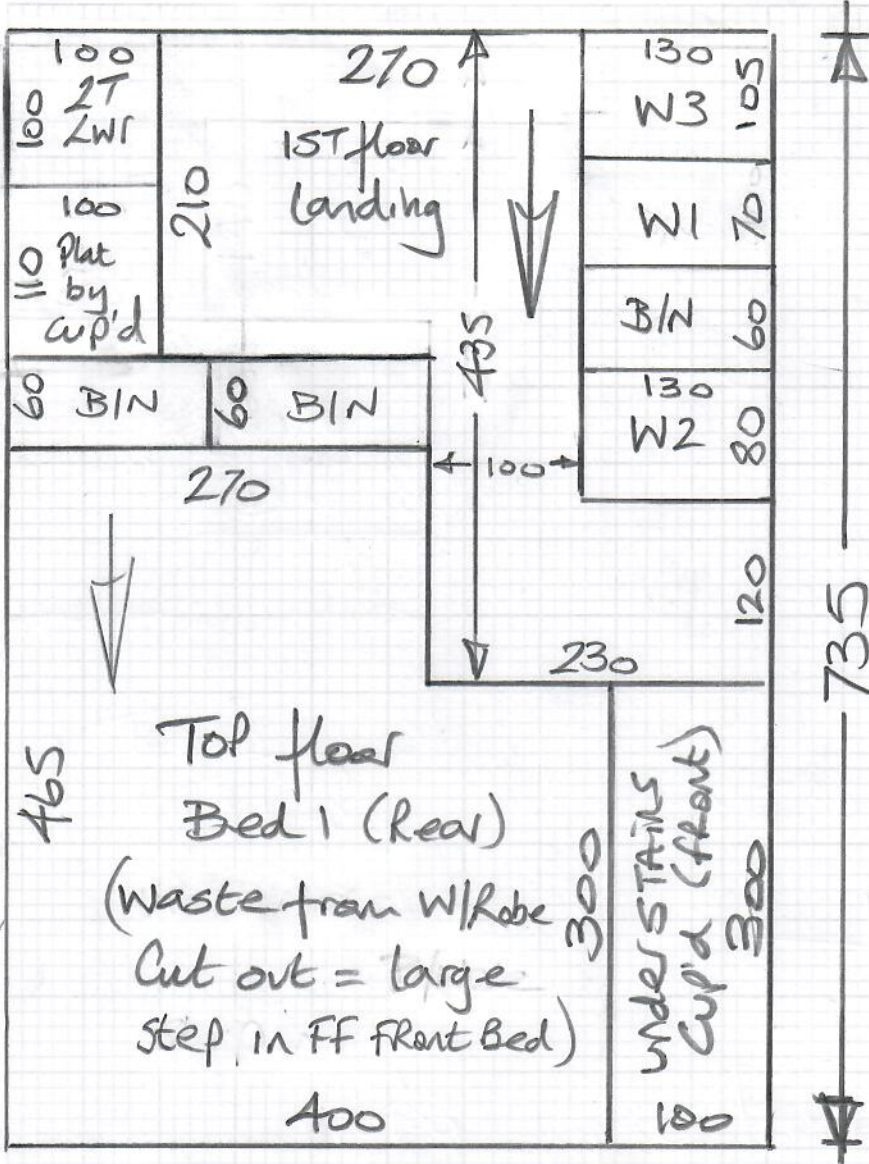 100
2T
LWR
100
270
1ST floor
Landing
210
435
130
W3
105
W1
70
B/N
60
130
W2
80
100
Plat
by
cup'd
110
60
B/N
60
B/N
270
100
120
230
735
465
Top floor
Bed 1 (Rear)
(Waste from W/Robe
Cut out = large
step in FF FRont Bed)
400
300
underSTAiRS
Cup'd (fRont)
300
100